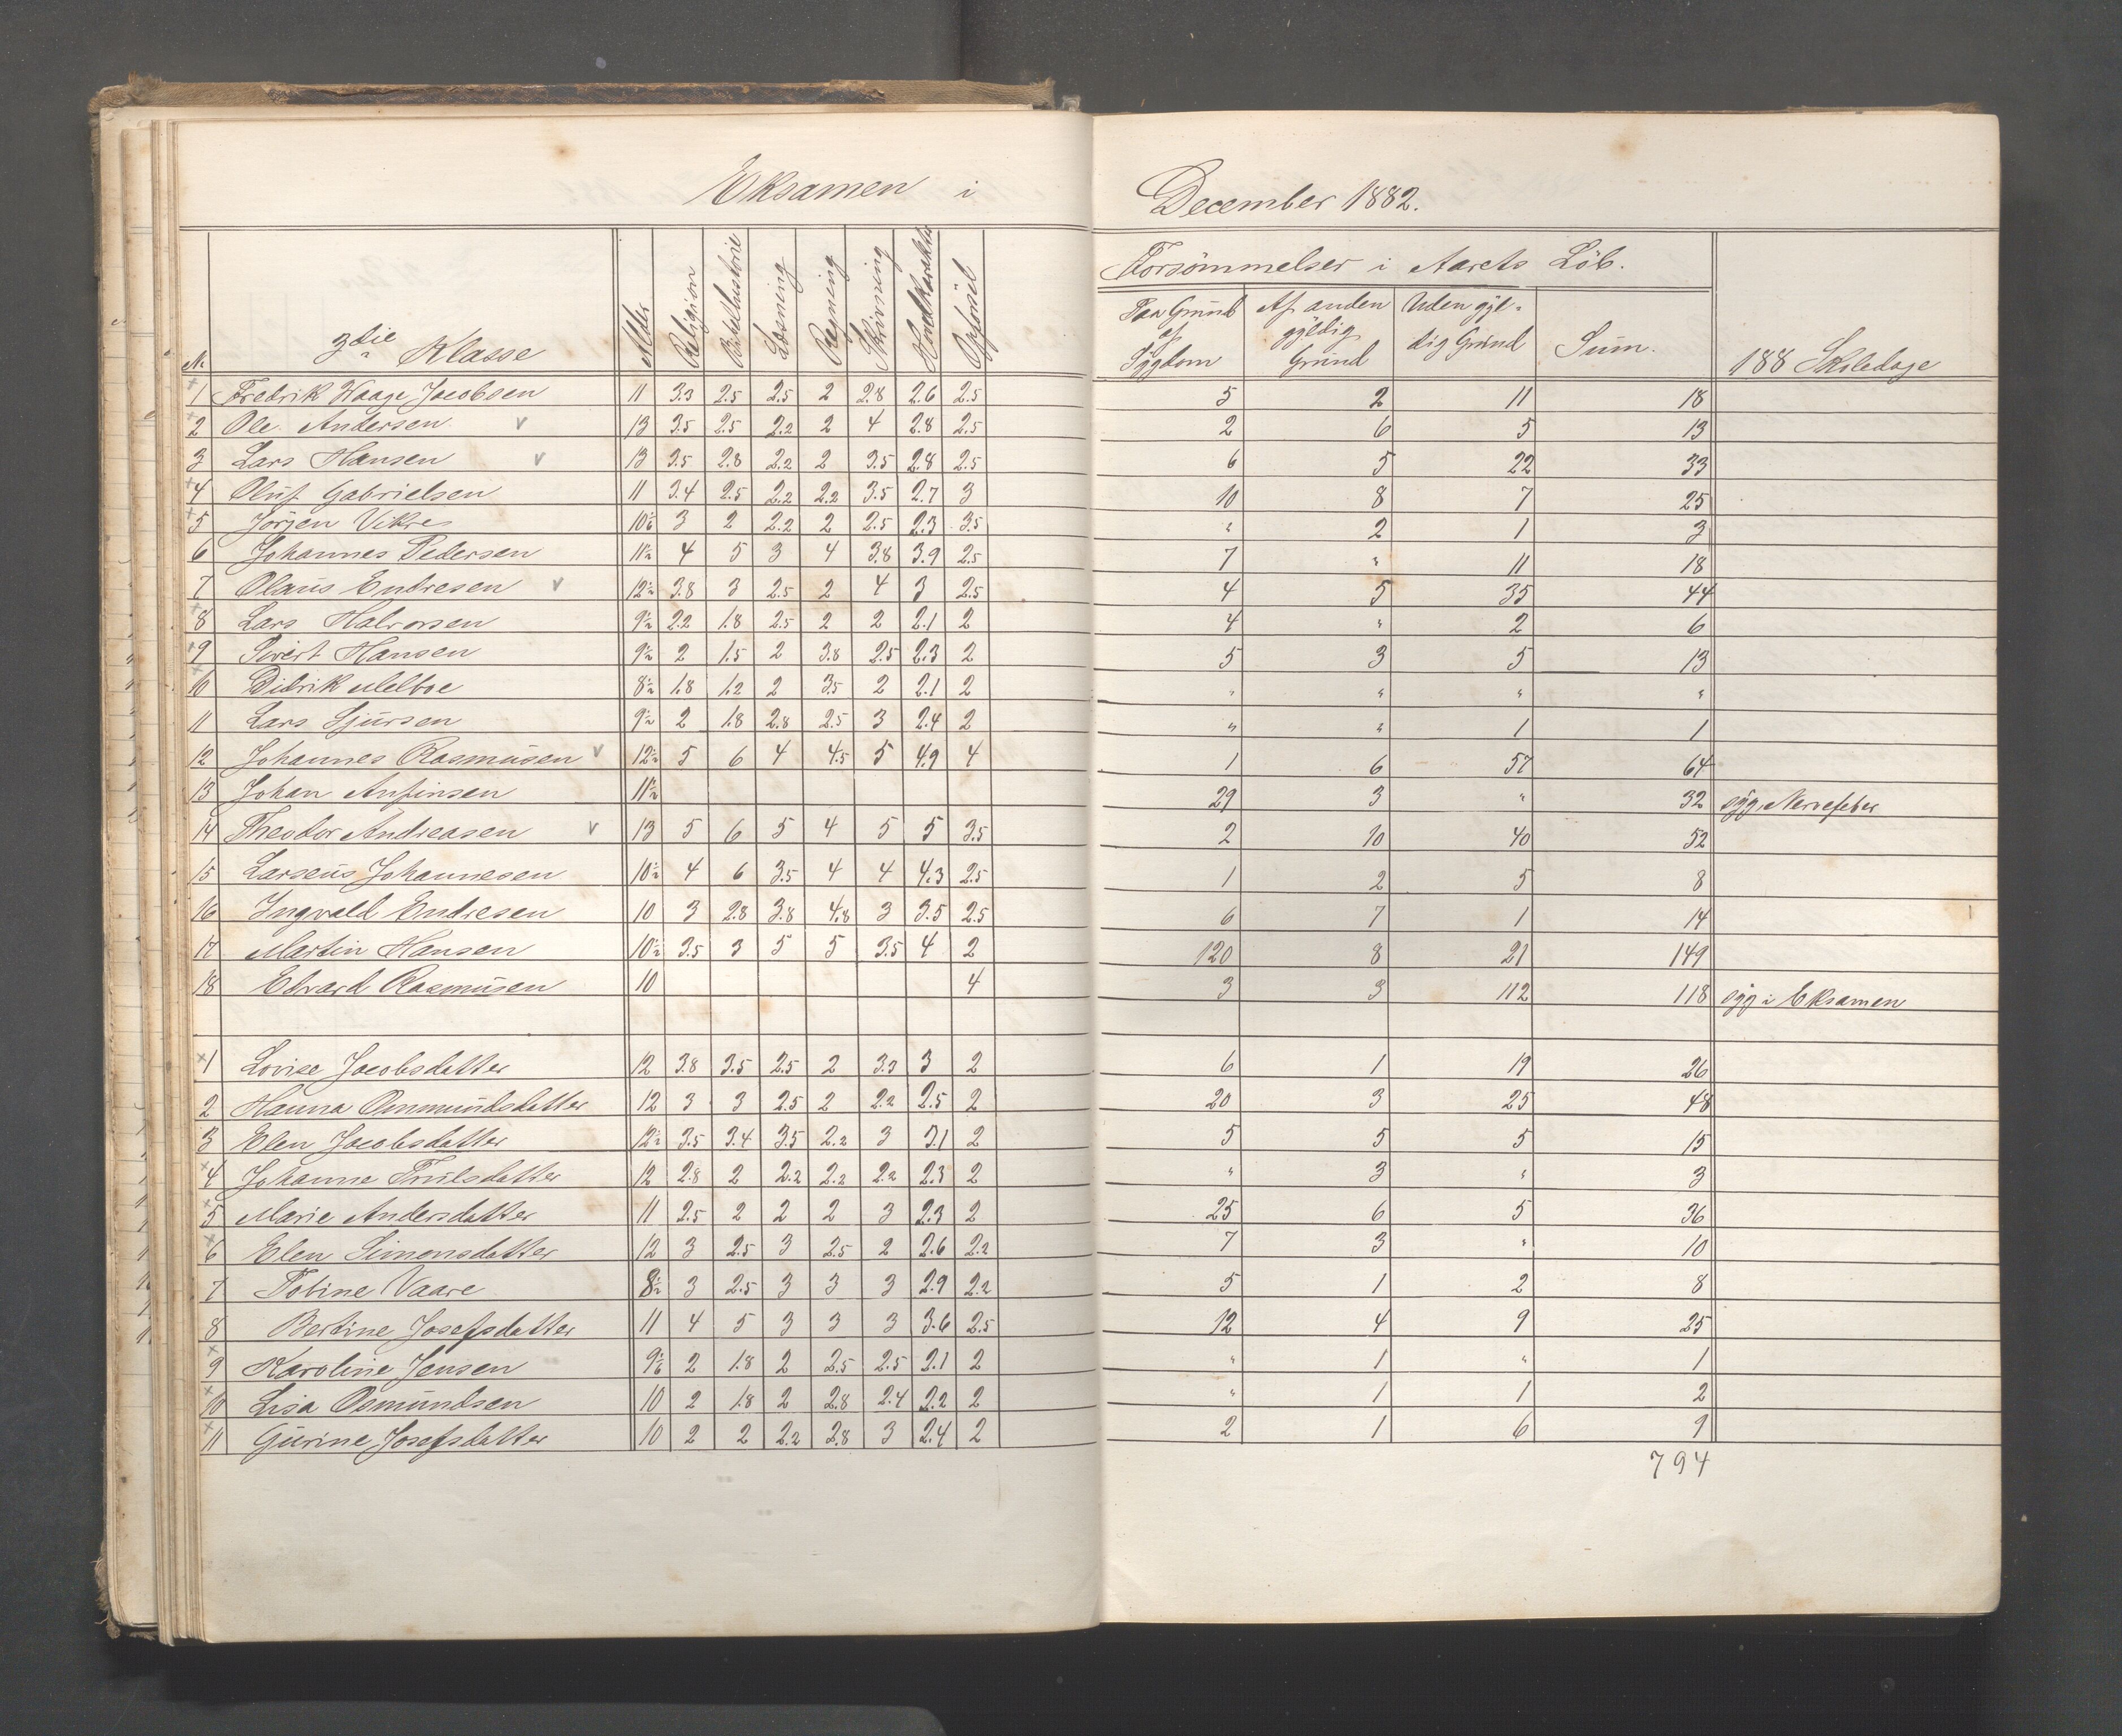 Eksamen i December 1882.
Forsömmelser i Aarets Löb.
No 3die Klasse Alder Religion Bibelhistorie Læsning Regning Skrivning Hovedkarakter Opförsel Paa Grund af Sygdom Af anden gyldig Grund Uden gyldig Grund Sum. 188 Skoledage
1 Fredrik Waage Jacobsen 11 3.3 2.5 2.5 2 2.8 2.6 2.5 5 2 11 18
2 Ole Andersen v 13 3.5 2.5 2.2 2 4 2.8 2.5 2 6 5 13
3 Lars Hansen v 13 3.5 2.8 2.2 2 3.5 2.8 2.5 6 5 22 33
4 Oluf Gabrielsen 11 3.4 2.5 2.2 2.2 3.5 2.7 3 10 8 7 25
5 Jörgen Vikre 10 1/6 3 2 2.2 2 2.5 2.3 3.5 " 2 1 3
6 Johannes Pedersen 11 1/2 4 5 3 4 3.8 3.9 2.5 7 " 11 18
7 Olaus Endresen v 12 1/2 3.8 3 2.5 2 4 3 2.5 4 5 35 44
8 Lars Halvorsen 9 1/2 2.2 1.8 2.5 2 2 2.1 2 4 " 2 6
9 Sivert Hansen 9 1/2 2 1.5 2 3.8 2.5 2.3 2 5 3 5 13
10 Didrik Melboe 8 1/2 1.8 1.2 2 3.5 2 2.1 2 " " " "
11 Lars Sjursen 9 1/2 2 1.8 2.8 2.5 3 2.4 2 " " 1 1
12 Johannes Rasmusen v 12 1/2 5 6 4 4.5 5 4.9 4 1 6 57 64
13 Johan Anfinsen 11 1/2 29 3 " 32 syg Nervefeber
14 Theodor Andreasen v 13 5 6 5 4 5 5 3.5 2 10 40 52
15 Larseus Johannesen 10 1/2 4 6 3.5 4 4 4.3 2.5 1 2 5 8
16 Ingvald Endresen 10 3 2.8 3.8 4.8 3 3.5 2.5 6 7 1 14
17 Martin Hansen 10 1/2 3.5 3 5 5 3.5 4 2 120 8 21 149
18 Edvard Rasmusen 10 4 3 3 112 118 syg i Eksamen
1 Lovise Jacobsdatter 12 3.8 3.5 2.5 2 3.3 3 2 6 1 19 26
2 Hanna Ommundsdatter 12 3 3 2.5 2 2.2 2.5 2 20 3 25 48
3 Elen Jacobsdatter 12 1/2 3.5 3.4 3.5 2.2 3 3.1 2 5 5 5 15
4 Johanne Trulsdatter 12 2.8 2 2.2 2.2 2.2 2.3 2 " 3 " 3
5 Marie Andersdatter 11 2.5 2 2 2 3 2.3 2 25 6 5 36
6 Elen Simonsdatter 12 3 2.5 3 2.5 2 2.6 2.2 7 3 " 10
7 Tobine Vaare 8 1/2 3 2.5 3 3 3 2.9 2.2 5 1 2 8
8 Bertine Josefsdatter 11 4 5 3 3 3 3.6 2.5 12 4 9 25
9 Karoline Jensen 9 1/6 2 1.8 2 2.5 2.5 2.1 2 " 1 " 1
10 Lisa Osmundsen 10 2 1.8 2 2.8 2.4 2.2 2 " 1 1 2
11 Gurine Josefsdatter 10 2 2 2.2 2.8 3 2.4 2 2 1 6 9
794